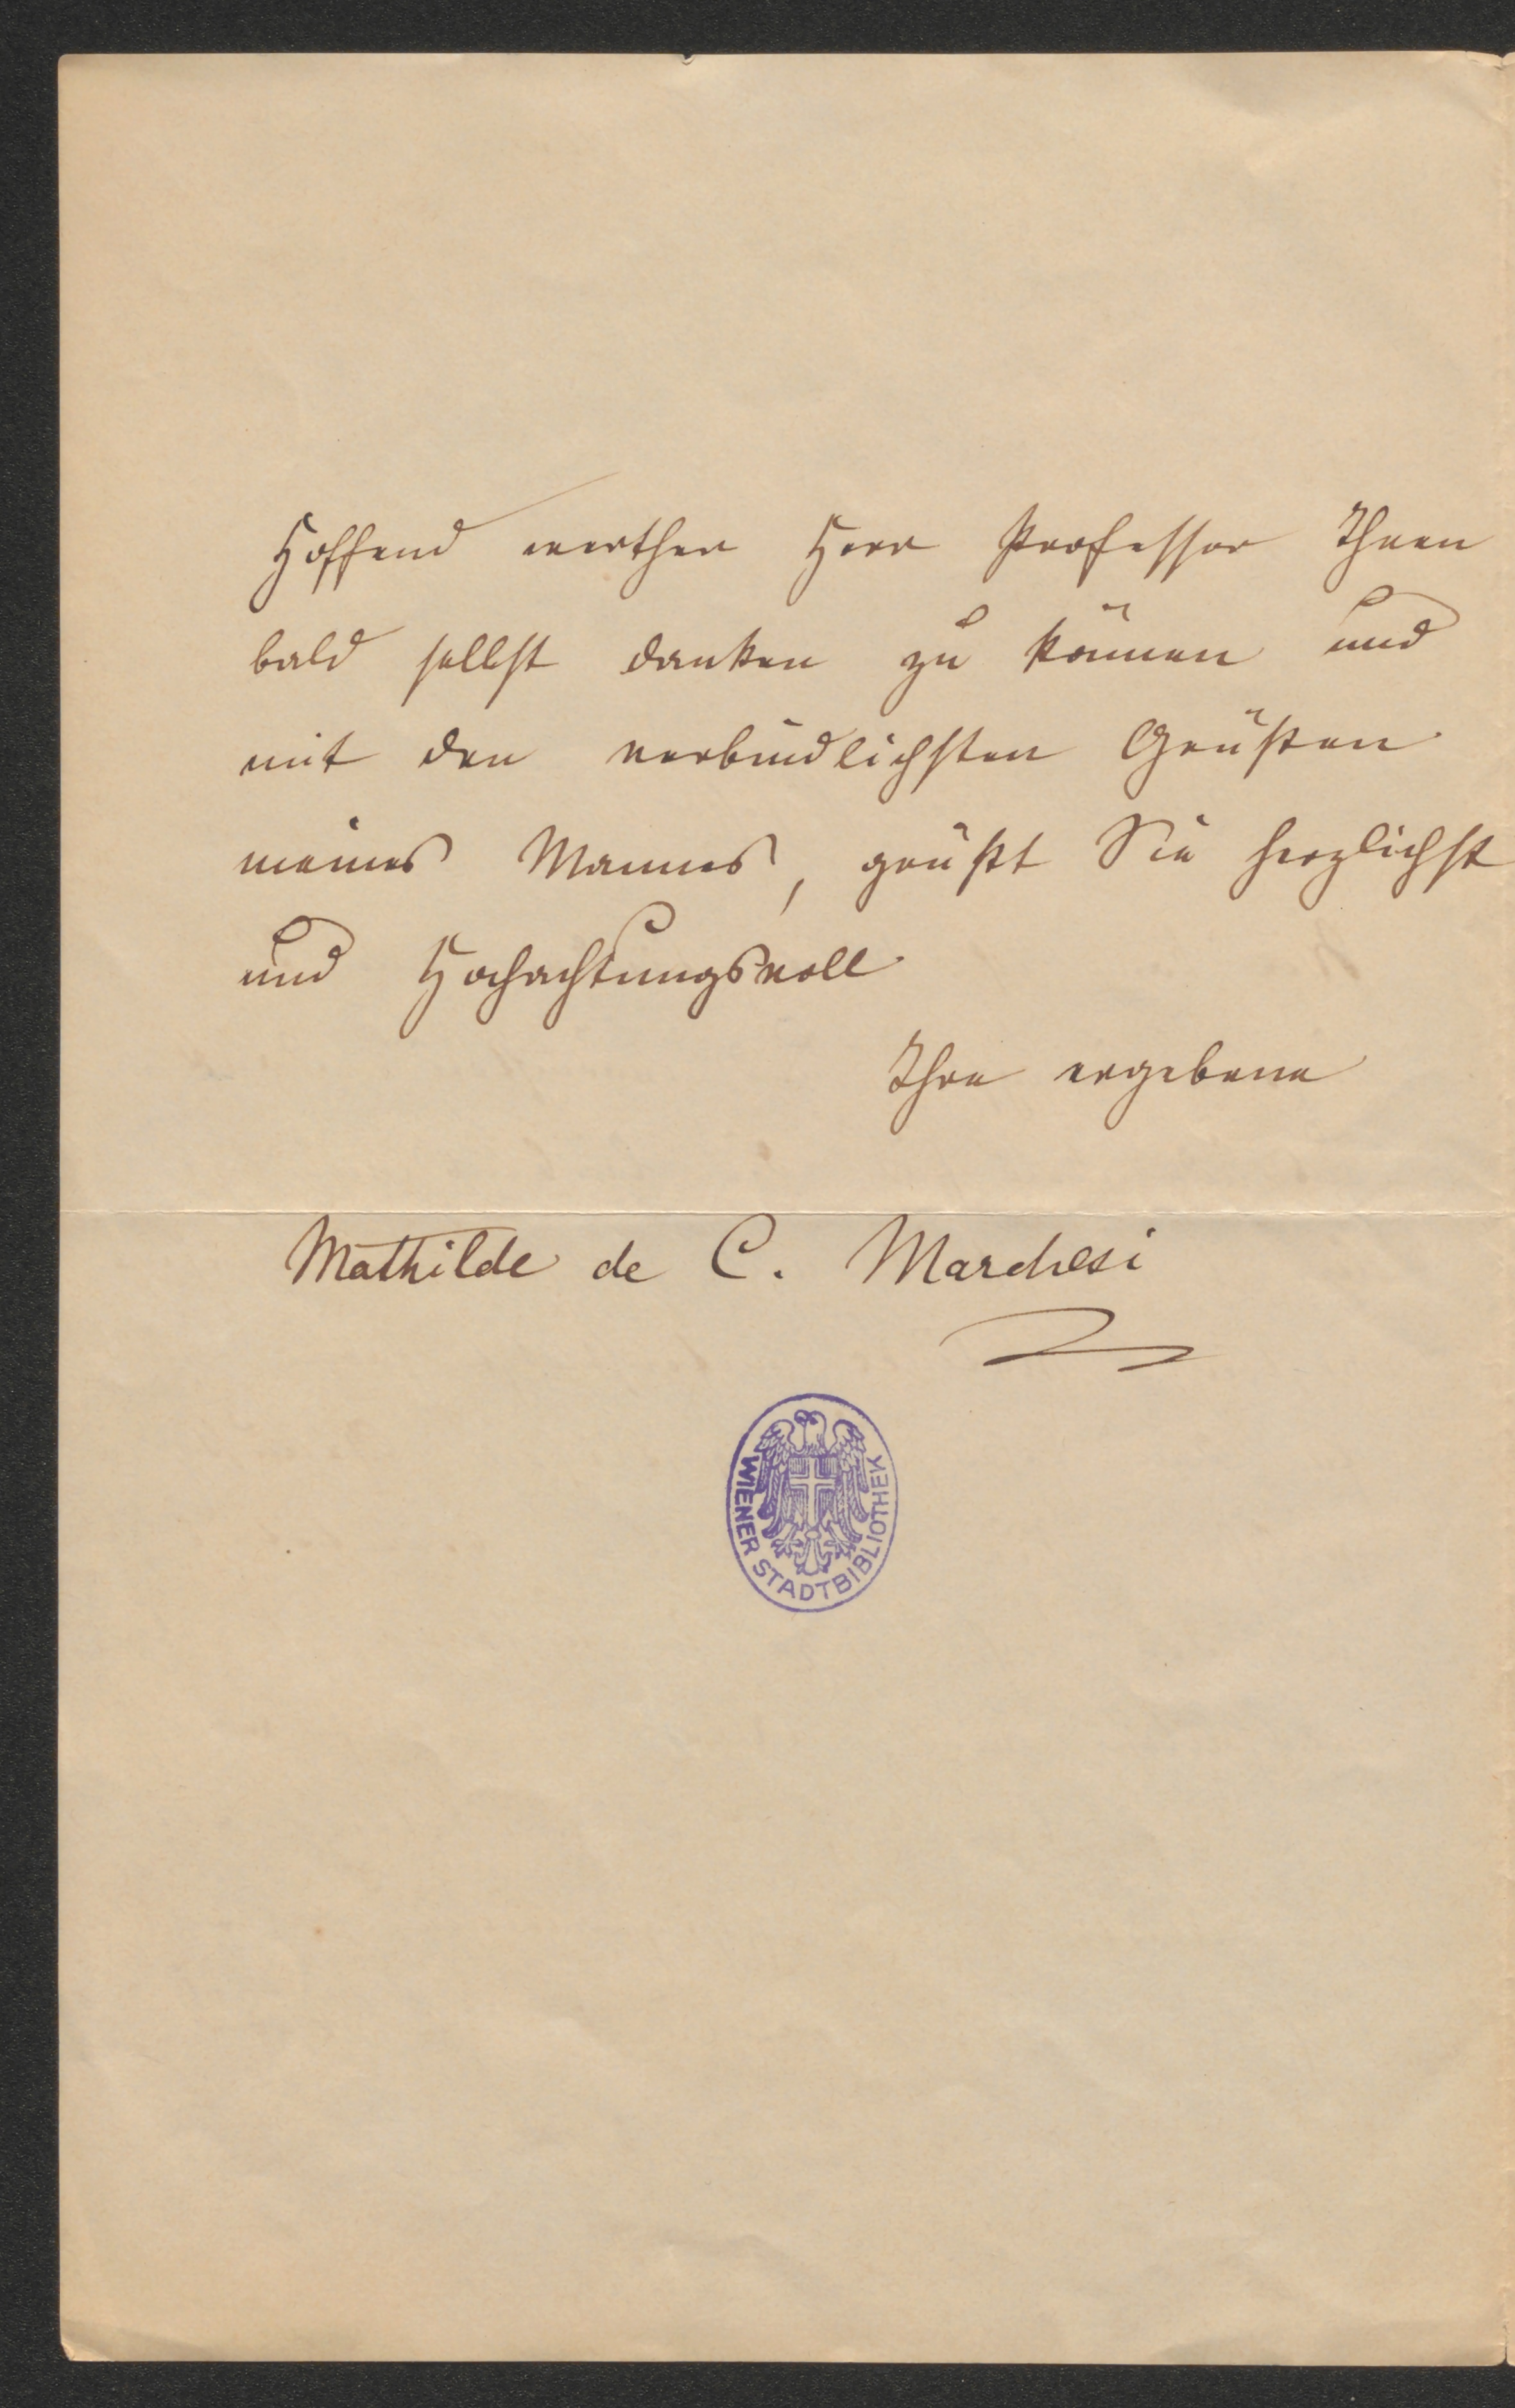 Hoffend werther Herr Professor Ihnen
bald selbst danken zu können und
mit den verbindlichsten Grüßen
meines Mannes, grüßt Sie herzlichst
und Hochachtungsvoll
Ihre ergebene
Mathilde de C. Marchesi
WIENER STADTBIBLIOTHEK